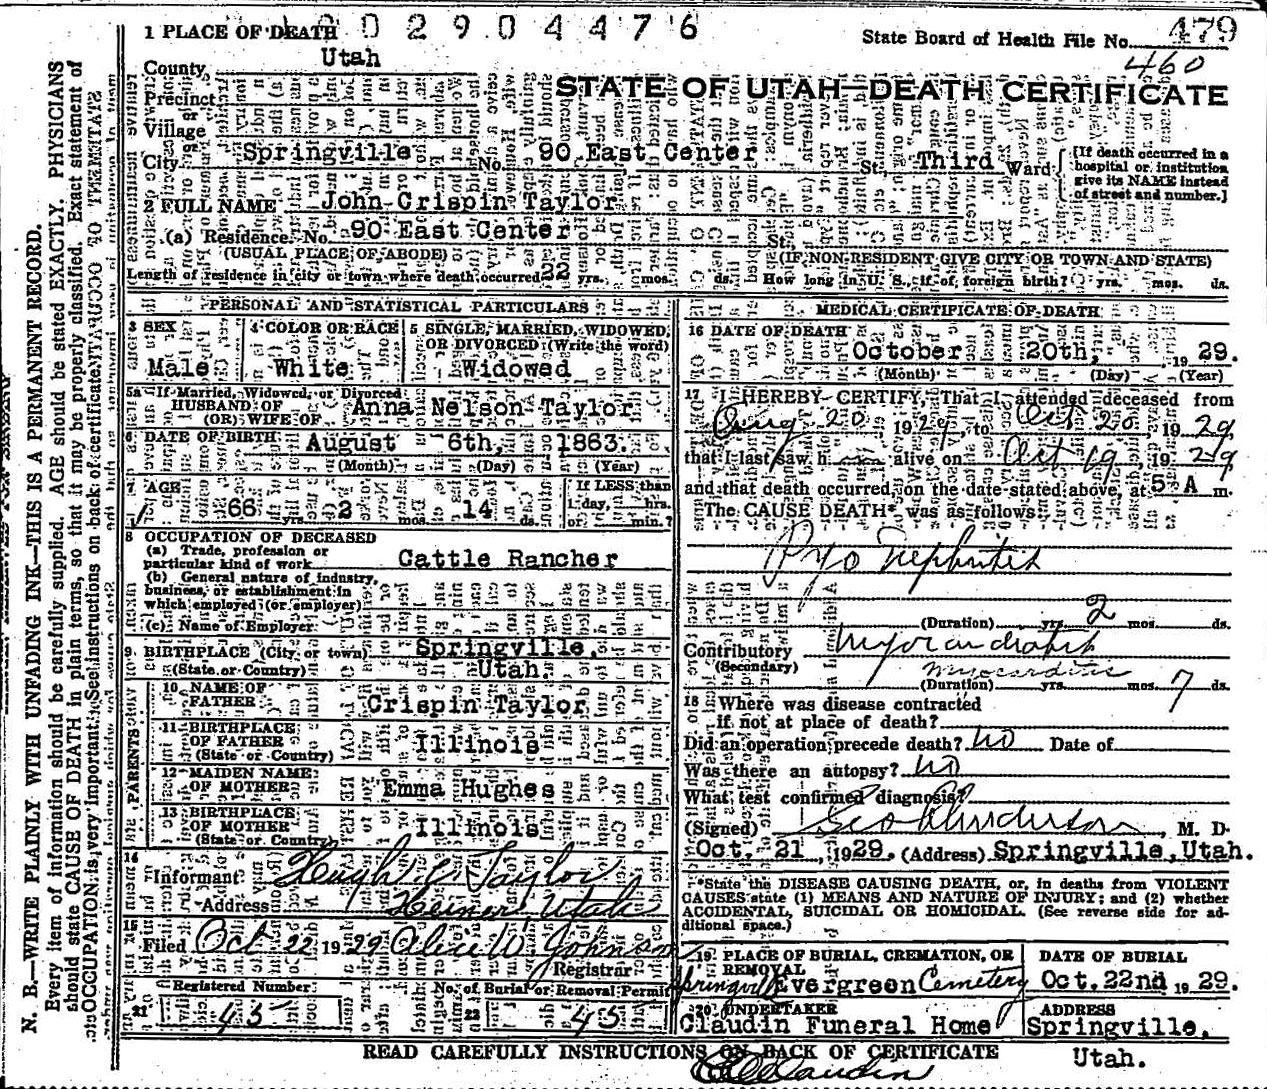 1 PLACE OF DEATH 1 0 0 2 9 0 4 4 7 6
State Board of Health File No. 479
460
County Utah
STATE OF UTAH—DEATH CERTIFICATE
Precinct
Village
or
City Springville No. 90 East Center St. Third Ward
[If death occurred in a
hospital or institution
give its NAME instead
of street and number.]
2 FULL NAME John Crispin Taylor
(a) Residence. No. 90 East Center St.
(USUAL PLACE OF ABODE) (IF NON-RESIDENT GIVE CITY OR TOWN AND STATE)
Length of residence in city or town where death occurred 22 yrs. mos. ds. How long in U. S., if of foreign birth? yrs. mos. ds.
PERSONAL AND STATISTICAL PARTICULARS
3 SEX 4 COLOR OR RACE 5 SINGLE, MARRIED, WIDOWED,
OR DIVORCED (Write the word)
Male White Widowed
5a If Married, Widowed, or Divorced
HUSBAND OF
(OR) WIFE OF Anna Nelson Taylor
6 DATE OF BIRTH August 6th, 1863.
(Month) (Day) (Year)
7 AGE If LESS than
66 yrs. 2 mos. 14 ds. 1 day, hrs.
or min.?
8 OCCUPATION OF DECEASED
(a) Trade, profession or
particular kind of work Cattle Rancher
(b) General nature of industry,
business, or establishment in
which employed (or employer)
(c) Name of Employer
9 BIRTHPLACE (City or town) Springville,
(State or Country) Utah.
PARENTS
10 NAME OF
FATHER Crispin Taylor
11 BIRTHPLACE
OF FATHER Illinois
(State or Country)
12 MAIDEN NAME
OF MOTHER Emma Hughes
13 BIRTHPLACE
OF MOTHER Illinois
(State or Country)
14
Informant Hugh C Taylor
Address Heiner, Utah
15
Filed Oct 22 1929 Alice W. Johnson
Registrar
Registered Number No. of Burial or Removal Permit
21 45 22 45
MEDICAL CERTIFICATE OF DEATH
16 DATE OF DEATH
October 20th, 1929.
(Month) (Day) (Year)
17 I HEREBY CERTIFY, That I attended deceased from
Aug 20 1929 to Oct 20 1929
that I last saw h alive on Oct 19 1929
and that death occurred, on the date stated above, at 5 A m.
The CAUSE DEATH* was as follows:
Pyo Nephritis
(Duration) yrs. 2 mos. ds.
Contributory Myocardiatis
(Secondary) myocarditis
(Duration) yrs. mos. 7 ds.
18 Where was disease contracted
if not at place of death?
Did an operation precede death? no Date of
Was there an autopsy? no
What test confirmed diagnosis?
(Signed) Geo Anderson, M. D.
Oct. 21, 1929. (Address) Springville, Utah.
*State the DISEASE CAUSING DEATH, or, in deaths from VIOLENT
CAUSES state (1) MEANS AND NATURE OF INJURY; and (2) whether
ACCIDENTAL, SUICIDAL OR HOMICIDAL. (See reverse side for ad-
ditional space.)
19 PLACE OF BURIAL, CREMATION, OR
REMOVAL
Springville Evergreen Cemetery
DATE OF BURIAL
Oct. 22nd 1929.
20 UNDERTAKER
Claudin Funeral Home
ADDRESS
Springville,
Utah.
READ CAREFULLY INSTRUCTIONS ON BACK OF CERTIFICATE
Claudin
N. B.—WRITE PLAINLY WITH UNFADING INK—THIS IS A PERMANENT RECORD.
Every item of information should be carefully supplied. AGE should be stated EXACTLY. PHYSICIANS
should state CAUSE OF DEATH in plain terms, so that it may be properly classified. Exact statement of
OCCUPATION is very important. See instructions on back of certificate.